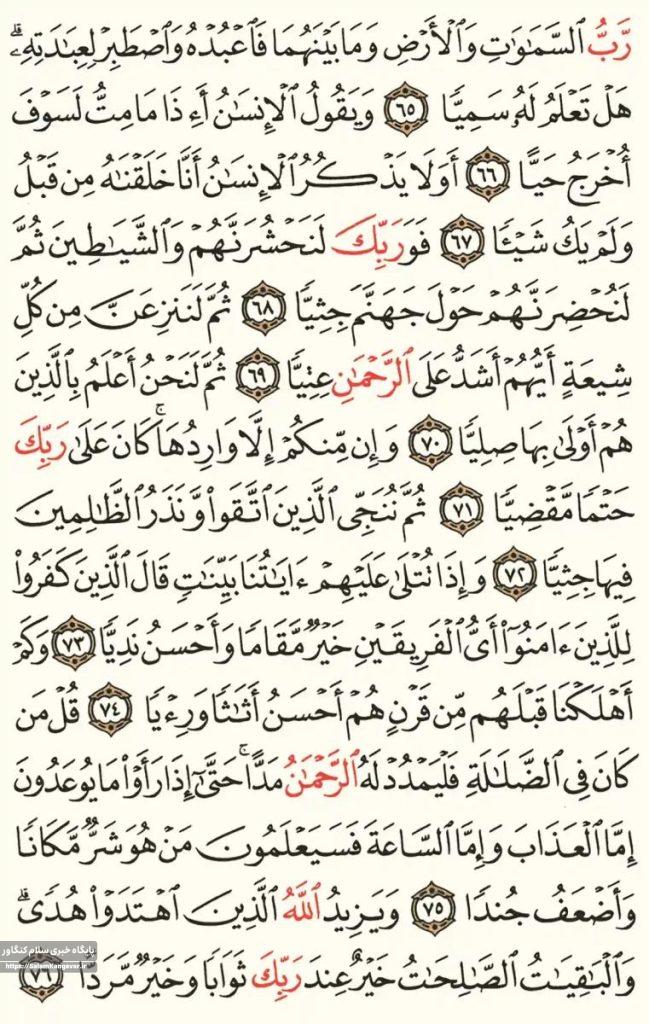 رَّبُّ ٱلسَّمَٰوَٰتِ وَٱلْأَرْضِ وَمَا بَيْنَهُمَا فَٱعْبُدْهُ وَٱصْطَبِرْ لِعِبَٰدَتِهِۦۚ
هَلْ تَعْلَمُ لَهُۥ سَمِيًّا ٦٥ وَيَقُولُ ٱلْإِنسَٰنُ أَءِذَا مَا مِتُّ لَسَوْفَ
أُخْرَجُ حَيًّا ٦٦ أَوَلَا يَذْكُرُ ٱلْإِنسَٰنُ أَنَّا خَلَقْنَٰهُ مِن قَبْلُ
وَلَمْ يَكُ شَيْـًٔا ٦٧ فَوَرَبِّكَ لَنَحْشُرَنَّهُمْ وَٱلشَّيَٰطِينَ ثُمَّ
لَنُحْضِرَنَّهُمْ حَوْلَ جَهَنَّمَ جِثِيًّا ٦٨ ثُمَّ لَنَنزِعَنَّ مِن كُلِّ
شِيعَةٍ أَيُّهُمْ أَشَدُّ عَلَى ٱلرَّحْمَٰنِ عِتِيًّا ٦٩ ثُمَّ لَنَحْنُ أَعْلَمُ بِٱلَّذِينَ
هُمْ أَوْلَىٰ بِهَا صِلِيًّا ٧٠ وَإِن مِّنكُمْ إِلَّا وَارِدُهَاۚ كَانَ عَلَىٰ رَبِّكَ
حَتْمًا مَّقْضِيًّا ٧١ ثُمَّ نُنَجِّى ٱلَّذِينَ ٱتَّقَوا۟ وَّنَذَرُ ٱلظَّٰلِمِينَ
فِيهَا جِثِيًّا ٧٢ وَإِذَا تُتْلَىٰ عَلَيْهِمْ ءَايَٰتُنَا بَيِّنَٰتٍ قَالَ ٱلَّذِينَ كَفَرُوا۟
لِلَّذِينَ ءَامَنُوٓا۟ أَىُّ ٱلْفَرِيقَيْنِ خَيْرٌ مَّقَامًا وَأَحْسَنُ نَدِيًّا ٧٣ وَكَمْ
أَهْلَكْنَا قَبْلَهُم مِّن قَرْنٍ هُمْ أَحْسَنُ أَثَٰثًا وَرِءْيًا ٧٤ قُلْ مَن
كَانَ فِى ٱلضَّلَٰلَةِ فَلْيَمْدُدْ لَهُ ٱلرَّحْمَٰنُ مَدًّاۚ حَتَّىٰٓ إِذَا رَأَوْا۟ مَا يُوعَدُونَ
إِمَّا ٱلْعَذَابَ وَإِمَّا ٱلسَّاعَةَ فَسَيَعْلَمُونَ مَنْ هُوَ شَرٌّ مَّكَانًا
وَأَضْعَفُ جُندًا ٧٥ وَيَزِيدُ ٱللَّهُ ٱلَّذِينَ ٱهْتَدَوْا۟ هُدًىۗ
وَٱلْبَٰقِيَٰتُ ٱلصَّٰلِحَٰتُ خَيْرٌ عِندَ رَبِّكَ ثَوَابًا وَخَيْرٌ مَّرَدًّا ٧٦
پایگاه خبری سلام کنگاور
https://SalamKangavar.ir